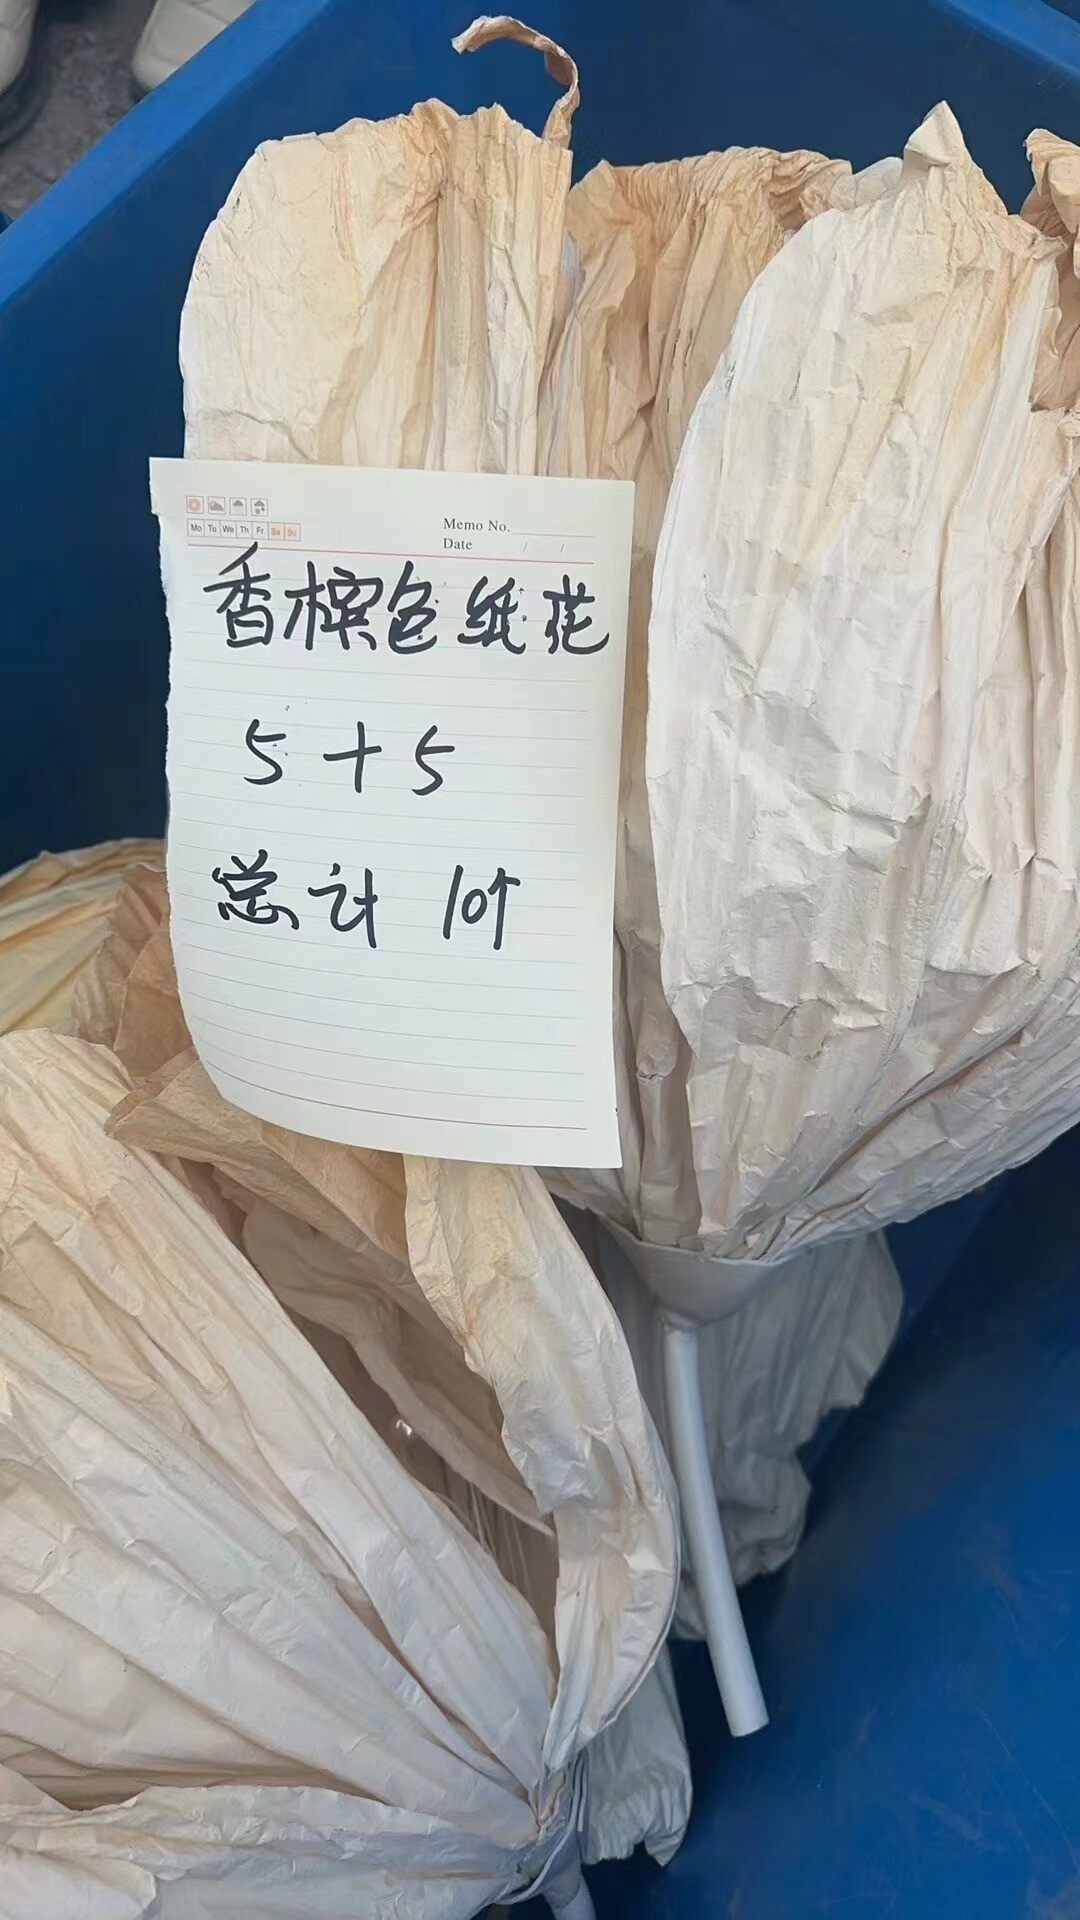 Mo Tu We Th Fr Sa Su
Memo No.
Date / /
香槟色纸花
5+5
总计 10个